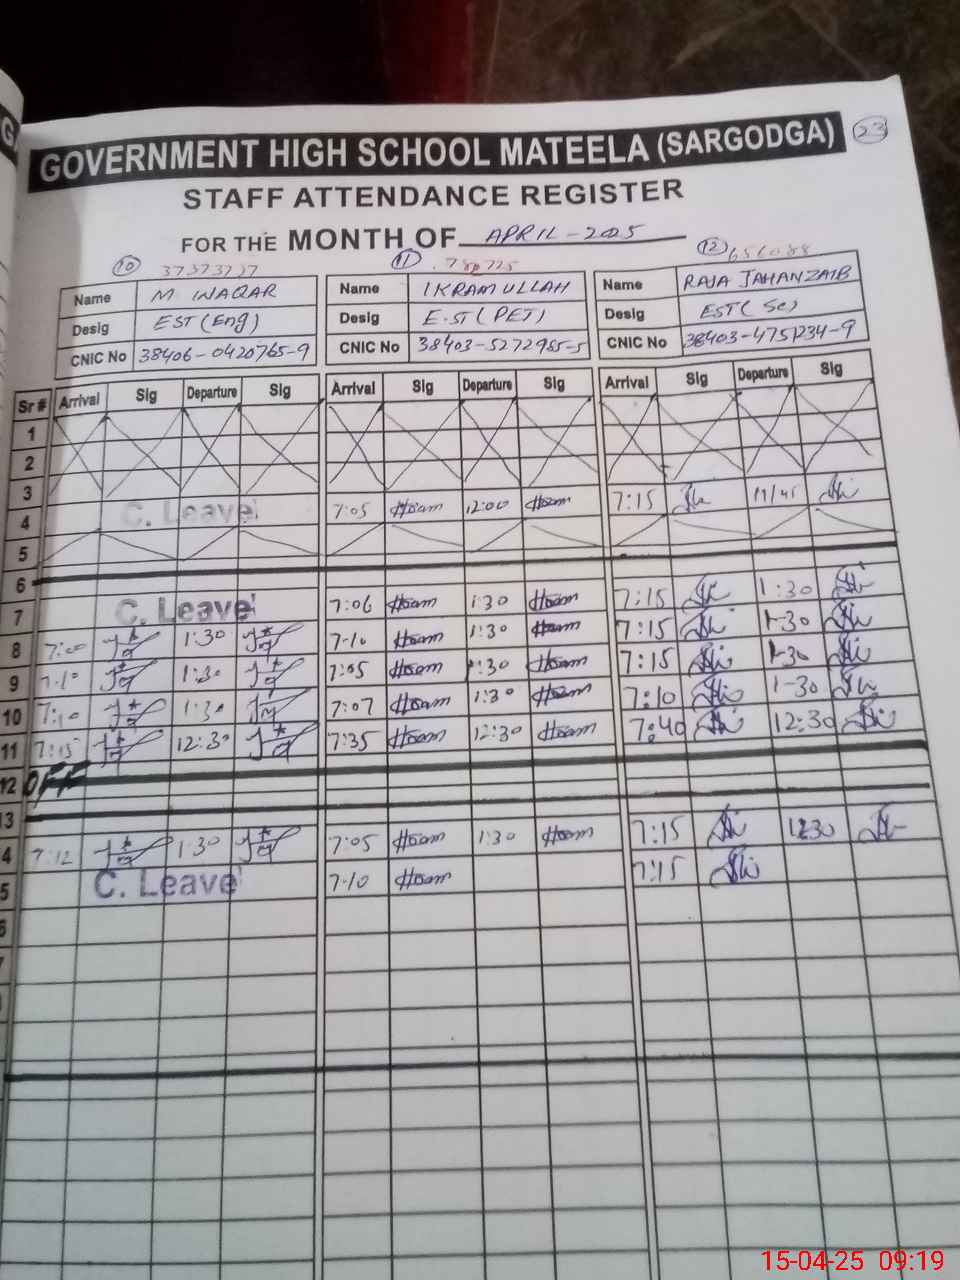 GOVERNMENT HIGH SCHOOL MATEELA (SARGODGA) 23
STAFF ATTENDANCE REGISTER
FOR THE MONTH OF APRIL-2025
10 37373737 11 12 656088
Name M WAQAR Name IKRAM ULLAH Name RAJA JAHANZAIB
Desig EST (Eng) Desig E.ST (PET) Desig EST (Sc)
CNIC No 38406-0420765-9 CNIC No 38403-5272985-5 CNIC No 38403-4751234-9
Sr # Arrival Sig Departure Sig Arrival Sig Departure Sig Arrival Sig Departure Sig
1
2
3
4 C. Leave 7:05 12:00 7:15 11/45
5
6
7 C. Leave 7:06 1:30 7:15 1:30
8 7:00 1:30 7-10 1:30 7:15 1-30
9 7-10 1:30 7:05 1:30 7:15 1-30
10 7:10 1:30 7:07 1:30 7:10 1-30
11 7:15 12:30 7:35 12:30 7:40 12:30
12 OFF
13
4 7:12 1:30 7:05 1:30 7:15
5 C. Leave 7-10 7:15
15-04-25 09:19